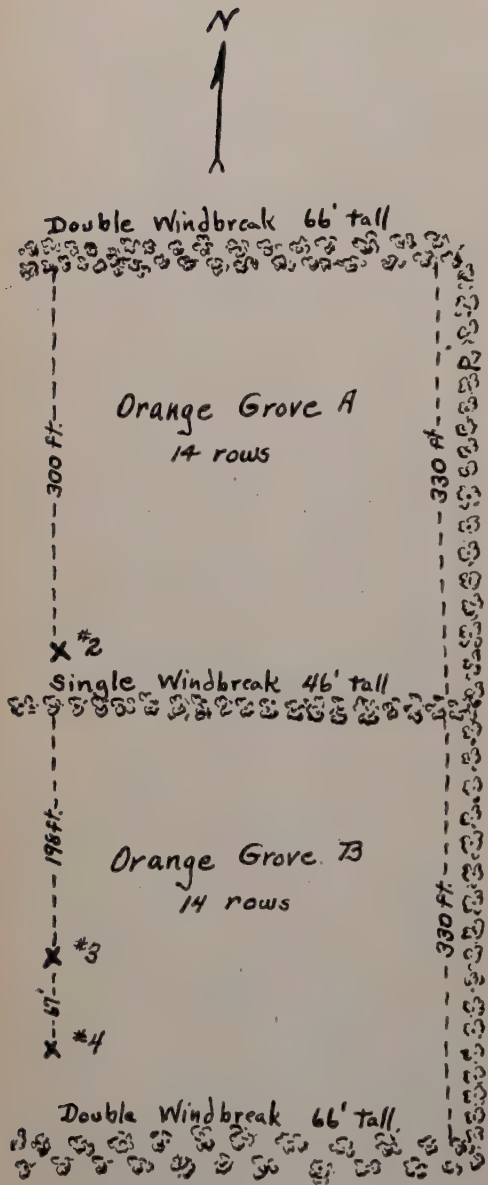 N
Double Windbreak 66' tall
Orange Grove A
14 rows
300 ft.
330 ft.
#2
Single Windbreak 46' tall
198 ft.
Orange Grove B
14 rows
330 ft.
#3
67'
#4
Double Windbreak 66' tall.